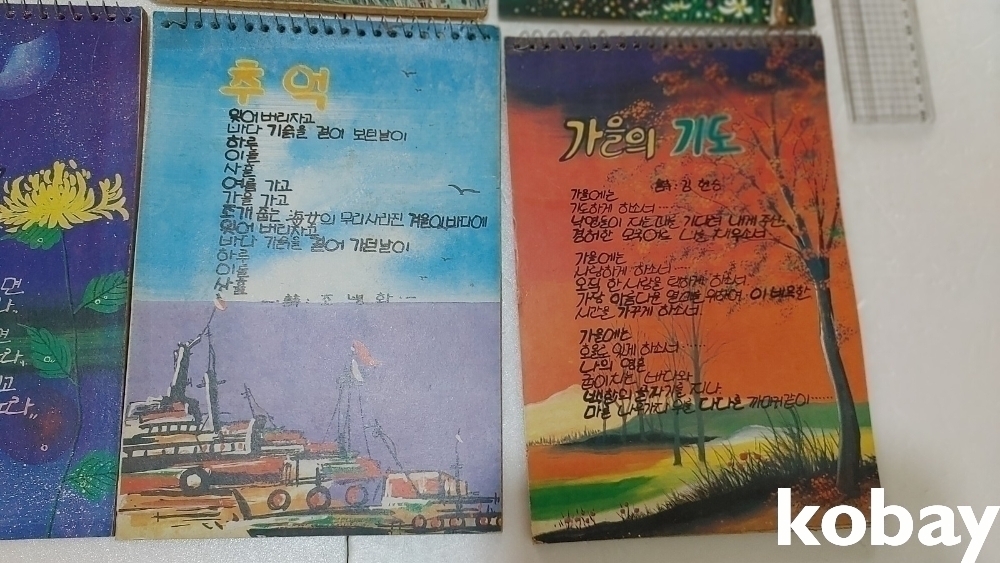 면
나.
면
라..
고
노라,,
추억
잊어버리자고
바다 기슭을 걸어 보던날이
하루
이틀
사흘
여름 가고
가을 가고
조개 줍는 海女의 무리사라진 겨울이바다에
잊어버리자고
바다 기슭을 걸어 가던날이
하루
이틀
사흘
詩: 조병화
가을의 기도
詩: 김현승
가을에는
기도하게 하소서……
낙엽들이 지는때를 기다려 내게주신
겸허한 모국어로 나를 채우소서.
가을에는
사랑하게 하소서……
오직 한 사람을 택하게 하소서.
가장 아름다운 열매를 위하여 이 비옥한
시간을 가꾸게 하소서.
가을에는
호올로 있게 하소서……
나의 영혼
굽이치는 바다와
백합의 골짜기를 지나
마른 나뭇가지 위에 다다른 까마귀같이……
kobay